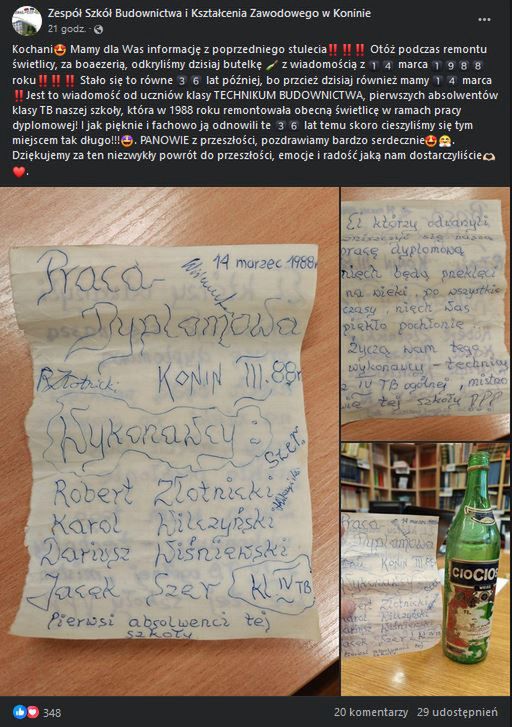 Zespół Szkół Budownictwa i Kształcenia Zawodowego w Koninie
21 godz. ·
Kochani🤩 Mamy dla Was informację z poprzedniego stulecia‼️‼️‼️ Otóż podczas remontu
świetlicy, za boazerią, odkryliśmy dzisiaj butelkę 🍾 z wiadomością z 1 4 marca 1 9 8 8
roku‼️‼️‼️ Stało się to równe 3 6 lat później, bo przcież dzisiaj również mamy 1 4 marca
‼️Jest to wiadomość od uczniów klasy TECHNIKUM BUDOWNICTWA, pierwszych absolwentów
klasy TB naszej szkoły, która w 1988 roku remontowała obecną świetlicę w ramach pracy
dyplomowej! I jak pięknie i fachowo ją odnowili te 3 6 lat temu skoro cieszyliśmy się tym
miejscem tak długo!!!🤩. PANOWIE z przeszłości, pozdrawiamy bardzo serdecznie🤩🤗.
Dziękujemy za ten niezwykły powrót do przeszłości, emocje i radość jaką nam dostarczyliście🫶🏻
❤️.
14 marzec 1988r
Praca
Dyplomowa
R. Złotnicki KONIN III.88r
Wykonawcy:
Szer
Robert Złotnicki
Karol Wilczyński
Dariusz Wiśniewski
Jacek Szer kl IV TB
Pierwsi absolwenci tej
szkoły
Ci którzy odważyli
zniszczyć się naszą
pracę dyplomową
niech będą przeklęci
na wieki, po wszystkie
czasy, niech was
piekło pochłonie
Życzą wam tego
wykonawcy - technicy
z IV TB ogólnej, mistrzo
wie tej szkoły PPP
14 marzec 1988r
Praca
Dyplomowa
KONIN III.88
Wykonawcy:
Robert Złotnicki
Karol Wilczyński
Dariusz Wiśniewski
Jacek Szer
CIOCIOS
348
20 komentarzy 29 udostępnień